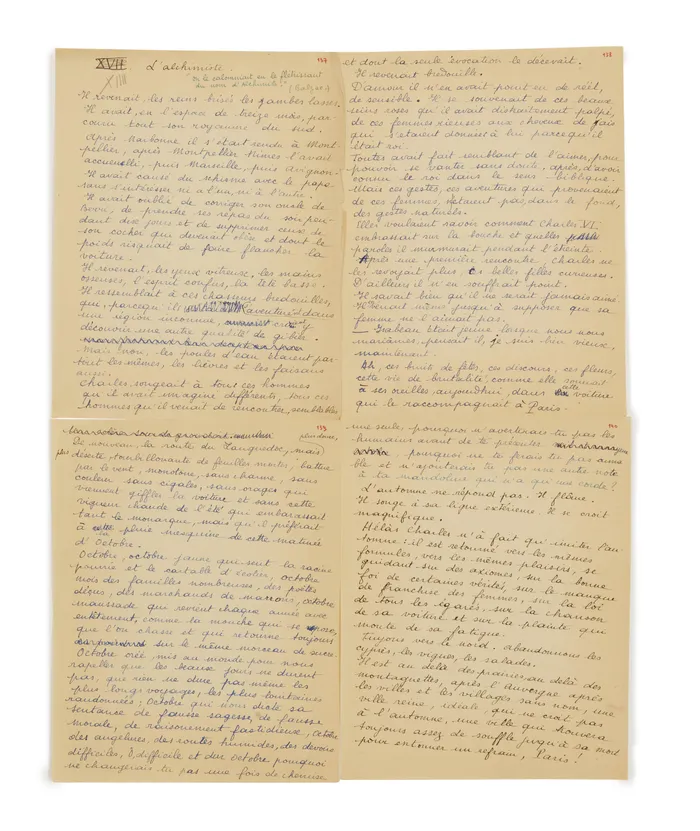 XVII 157
XIII
L'alchimiste.
on le calomniait en le flétrissant
du nom d'Alchimiste! (Balzac)
Il revenait, les reins brisés les jambes lasses.
Il avait, en l'espace de treize mois, par-
couru tout son royaume du sud.
Après Narbonne il s'était rendu à Mont-
pellier, après Montpellier Nîmes l'avait
accueilli, puis Marseille, puis Avignon.
Il avait causé du schisme avec le pape
sans s'intéresser ni à l'un, ni à l'autre.
Il avait oublié de corriger son oncle de
Berri, de prendre ses repas du soir pen-
dant dix jours et de supprimer ceux de
son cocher qui devenait obèse et dont le
poids risquait de faire flancher la
voiture.
Il revenait, les yeux vitreux, les mains
osseuses, l'esprit confus, la tête basse.
Il ressemblait à ces chasseurs bredouilles,
qui, parce qu'ils aventurés dans
une région inconnue, y
découvrir une autre qualité de gibier.
Mais non, les poules d'eau étaient par-
tout les mêmes, les lièvres et les faisans
aussi.
Charles songeait à tous ces hommes
qu'il avait imaginé différents, tous ces
hommes qu'il venait de rencontrer, semblables
158
et dont la seule évocation le décevait.
Il revenait bredouille.
D'amour il n'en avait point eu de réel,
de sensible. Il se souvenait de ces beaux
seins roses qu'il avait distraitement palpé,
de ces femmes rieuses aux cheveux de jais
qui s'étaient données à lui parce qu'il
était roi.
Toutes avait fait semblant de l'aimer, pour
pouvoir se vanter sans doute, après, d'avoir
connu le roi dans le sens biblique.
Mais ces gestes, ces aventures qui provenaient
de ces femmes, n'étaient pas, dans le fond,
des gestes naturels.
Elles voulaient savoir comment Charles VI
embrassait sur la bouche et quelles
paroles il murmurait pendant l'étreinte.
Après une première rencontre, Charles ne
les revoyait plus ces belles filles curieuses.
D'ailleurs il n'en souffrait point.
Il savait bien qu'il ne serait jamais aimé
Il venait même jusqu'à supposer que sa
femme ne l'aimait pas.
— Isabeau était jeune lorsque nous nous
mariâmes, pensait-il, je suis bien vieux,
maintenant.
Ah, ces bruits de fêtes, ces discours, ces fleurs,
cette vie de brutalité, comme elle sonnait
à ses oreilles aujourd'hui, dans cette voiture
qui le raccompagnait à Paris.
159
plus dure,
De nouveau la route du Languedoc, mais
plus déserte tourbillonante de feuilles mortes, battue
par le vent, monotone, sans charme, sans
couleur sans cigales, sans orages qui
viennent gifler la voiture et sans cette
vigueur chaude de l'été qui embarassait
tant le monarque, mais qu'il préférait
à la pluie mesquine de cette matinée
d'Octobre.
Octobre, octobre jaune qui sent la racine
pourrie et le cartable d'écolier, octobre
mois des familles nombreuses, des poètes
déçus, des marchands de marrons, octobre
maussade qui revient chaque année avec
entêtement, comme la mouche qui se
que l'on chasse et qui retourne toujours
sur le même morceau de sucre
Octobre créé mis au monde pour nous
rapeller que les beaux jours ne durent
pas, que rien ne dure pas même les
plus longs voyages, les plus lointaines
randonnées; Octobre qui nous dicte sa
sentance de fausse sagesse, de fausse
morale, de raisonement fastidieuse, octobre
des angelines, des routes humides, des devoirs
difficiles, Ô, difficile et dur octobre, pourquoi
ne changerais tu pas une fois de chemise
une seule, pourquoi n'avertirais-tu pas les
humains avant de te présenter
, pourquoi ne te ferais tu pas aima-
ble et n'ajouterais tu pas une autre note
à ta mandoline qui n'a qu'une corde?
L'automne ne répond pas. Il flâne.
Il songe à sa ligne extérieure. Il se croit
magnifique.
Hélas Charles n'a fait qu'imiter l'au-
tomne: il est retourné vers les mêmes
formules, vers les mêmes plaisirs, se
guidant sur des axiomes, sur la bonne
foi de certaines vérités, sur le manque
de franchise des femmes, sur la loi
de tous les égarés, sur la chanson
de sa voiture et sur la plainte qui
monte de sa fatigue.
Tirons vers le nord. abandonnons les
cyprès, les vignes, les salades.
Il est au delà des plaines, au delà des
montagnettes, après l'Auvergne après
les villes et les villages sans nom, une
ville reine, idéale qui ne croit pas
à l'automne, une ville qui trouvera
toujours assez de souffle jusqu'à sa mort
pour entonner un refrain, Paris!